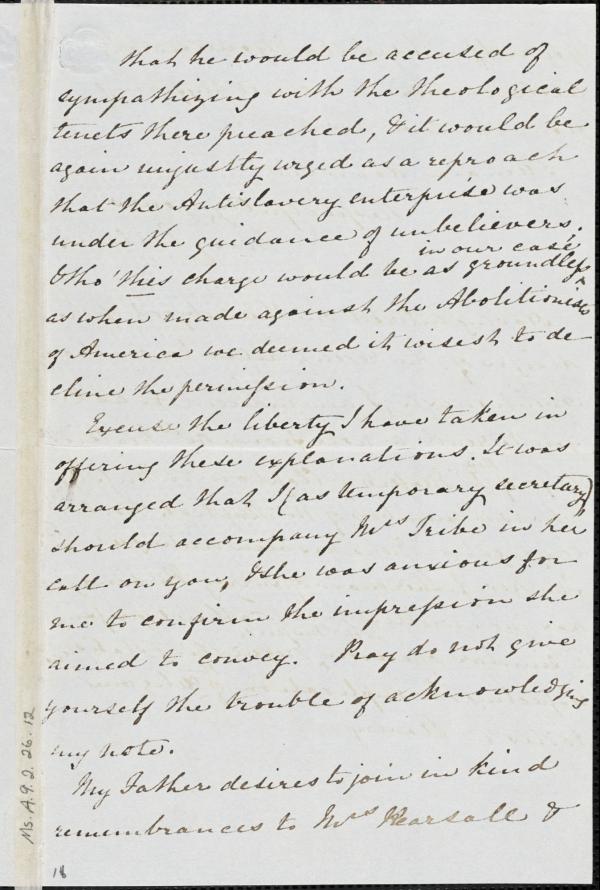 that he would be accused of
sympathizing with the theological
tenets there preached, & it would be
again unjustly urged as a reproach
that the Antislavery enterprise was
under the guidance of unbelievers.
in our case
& tho' this charge would be as groundless
as when made against the Abolitionists
of America we deemed it wisest to de-
cline the permission.
Excuse the liberty I have taken in
offering these explanations. It was
arranged that I (as temporary secretary)
should accompany Mrs Tribe in her
call on you, & she was anxious for
me to confirm the impression she
aimed to convey. Pray do not give
yourself the trouble of acknowledging
my note.
My Father desires to join in kind
remembrances to Mrs Pearsall &
Ms. A. 9. 2. 26. 12
18